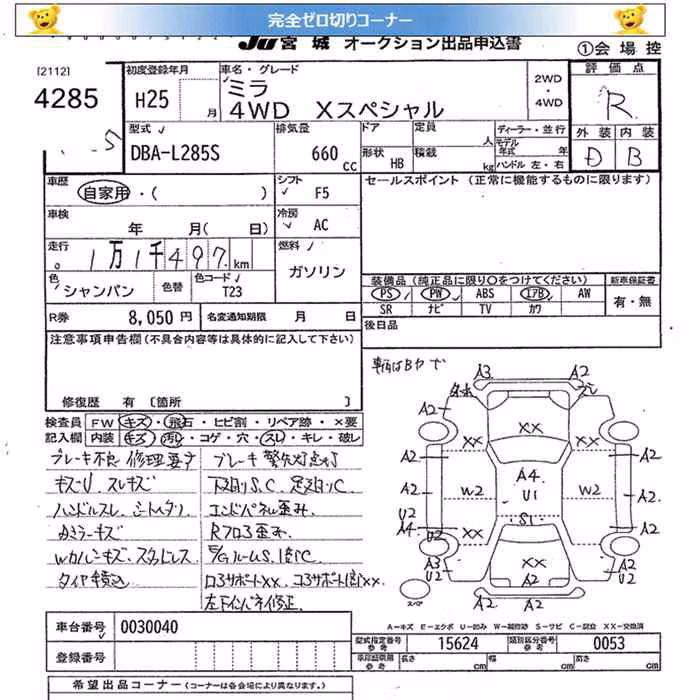 完全ゼロ切りコーナー
JU 宮城 オークション出品申込書
①会場控
[2112]
4285
初度登録年月
H25 月
車名・グレード
ミラ
4WD Xスペシャル
2WD・4WD
評価点
R
外装 内装
D B
型式
DBA-L285S
排気量
660 cc
ドア
形状 HB
定員 人
積載 kg
ディーラー・並行
モデル年式 年
ハンドル 左・右
車歴
自家用・( )
シフト
F5
セールスポイント (正常に機能するものに限ります)
車検
年 月( 日)
冷房
AC
走行
1万1千497km
燃料
ガソリン
色
シャンパン
色替
色コード
T23
装備品 (純正品に限り○をつけてください)
新車保証書
PS PW ABS エアB AW
有・無
SR ナビ TV カワ
R券 8,050 円
名変通知期限 月 日
後日品
注意事項申告欄(不具合内容等は具体的に記入して下さい)
修復歴 有 [箇所 ]
車柄はBかで
検査員記入欄
FW キズ・飛石・ヒビ割・リペア跡・X要
内装 キズ・汚れ・コゲ・穴・スレ・キレ・破レ
ブレーキ不良 修理要す
ブレーキ警告灯点灯
キズU スレキズ
下廻りS.C 足廻りC
ハンドルスレ シートヘタリ
エンドパネル歪み
Rフロア歪み
タイヤ積込
左下インパネ修正
A3 A2
A2 A2
XX XX XX
A2 A4 A2
A2 W2 U1 W2 A2
U2 S1
A4 XX XX A2
A3 U2 XX A2 A2 U2
A2 A2
スペア
A-キズ E-エクボ U-凹み W-補修跡 S-サビ C-腐食 XX-交換済
車台番号
0030040
型式指定番号 15624
類別区分番号 0053
登録番号
長さ cm
幅 cm
高さ cm
希望出品コーナー (コーナーは各会場により異なります。)